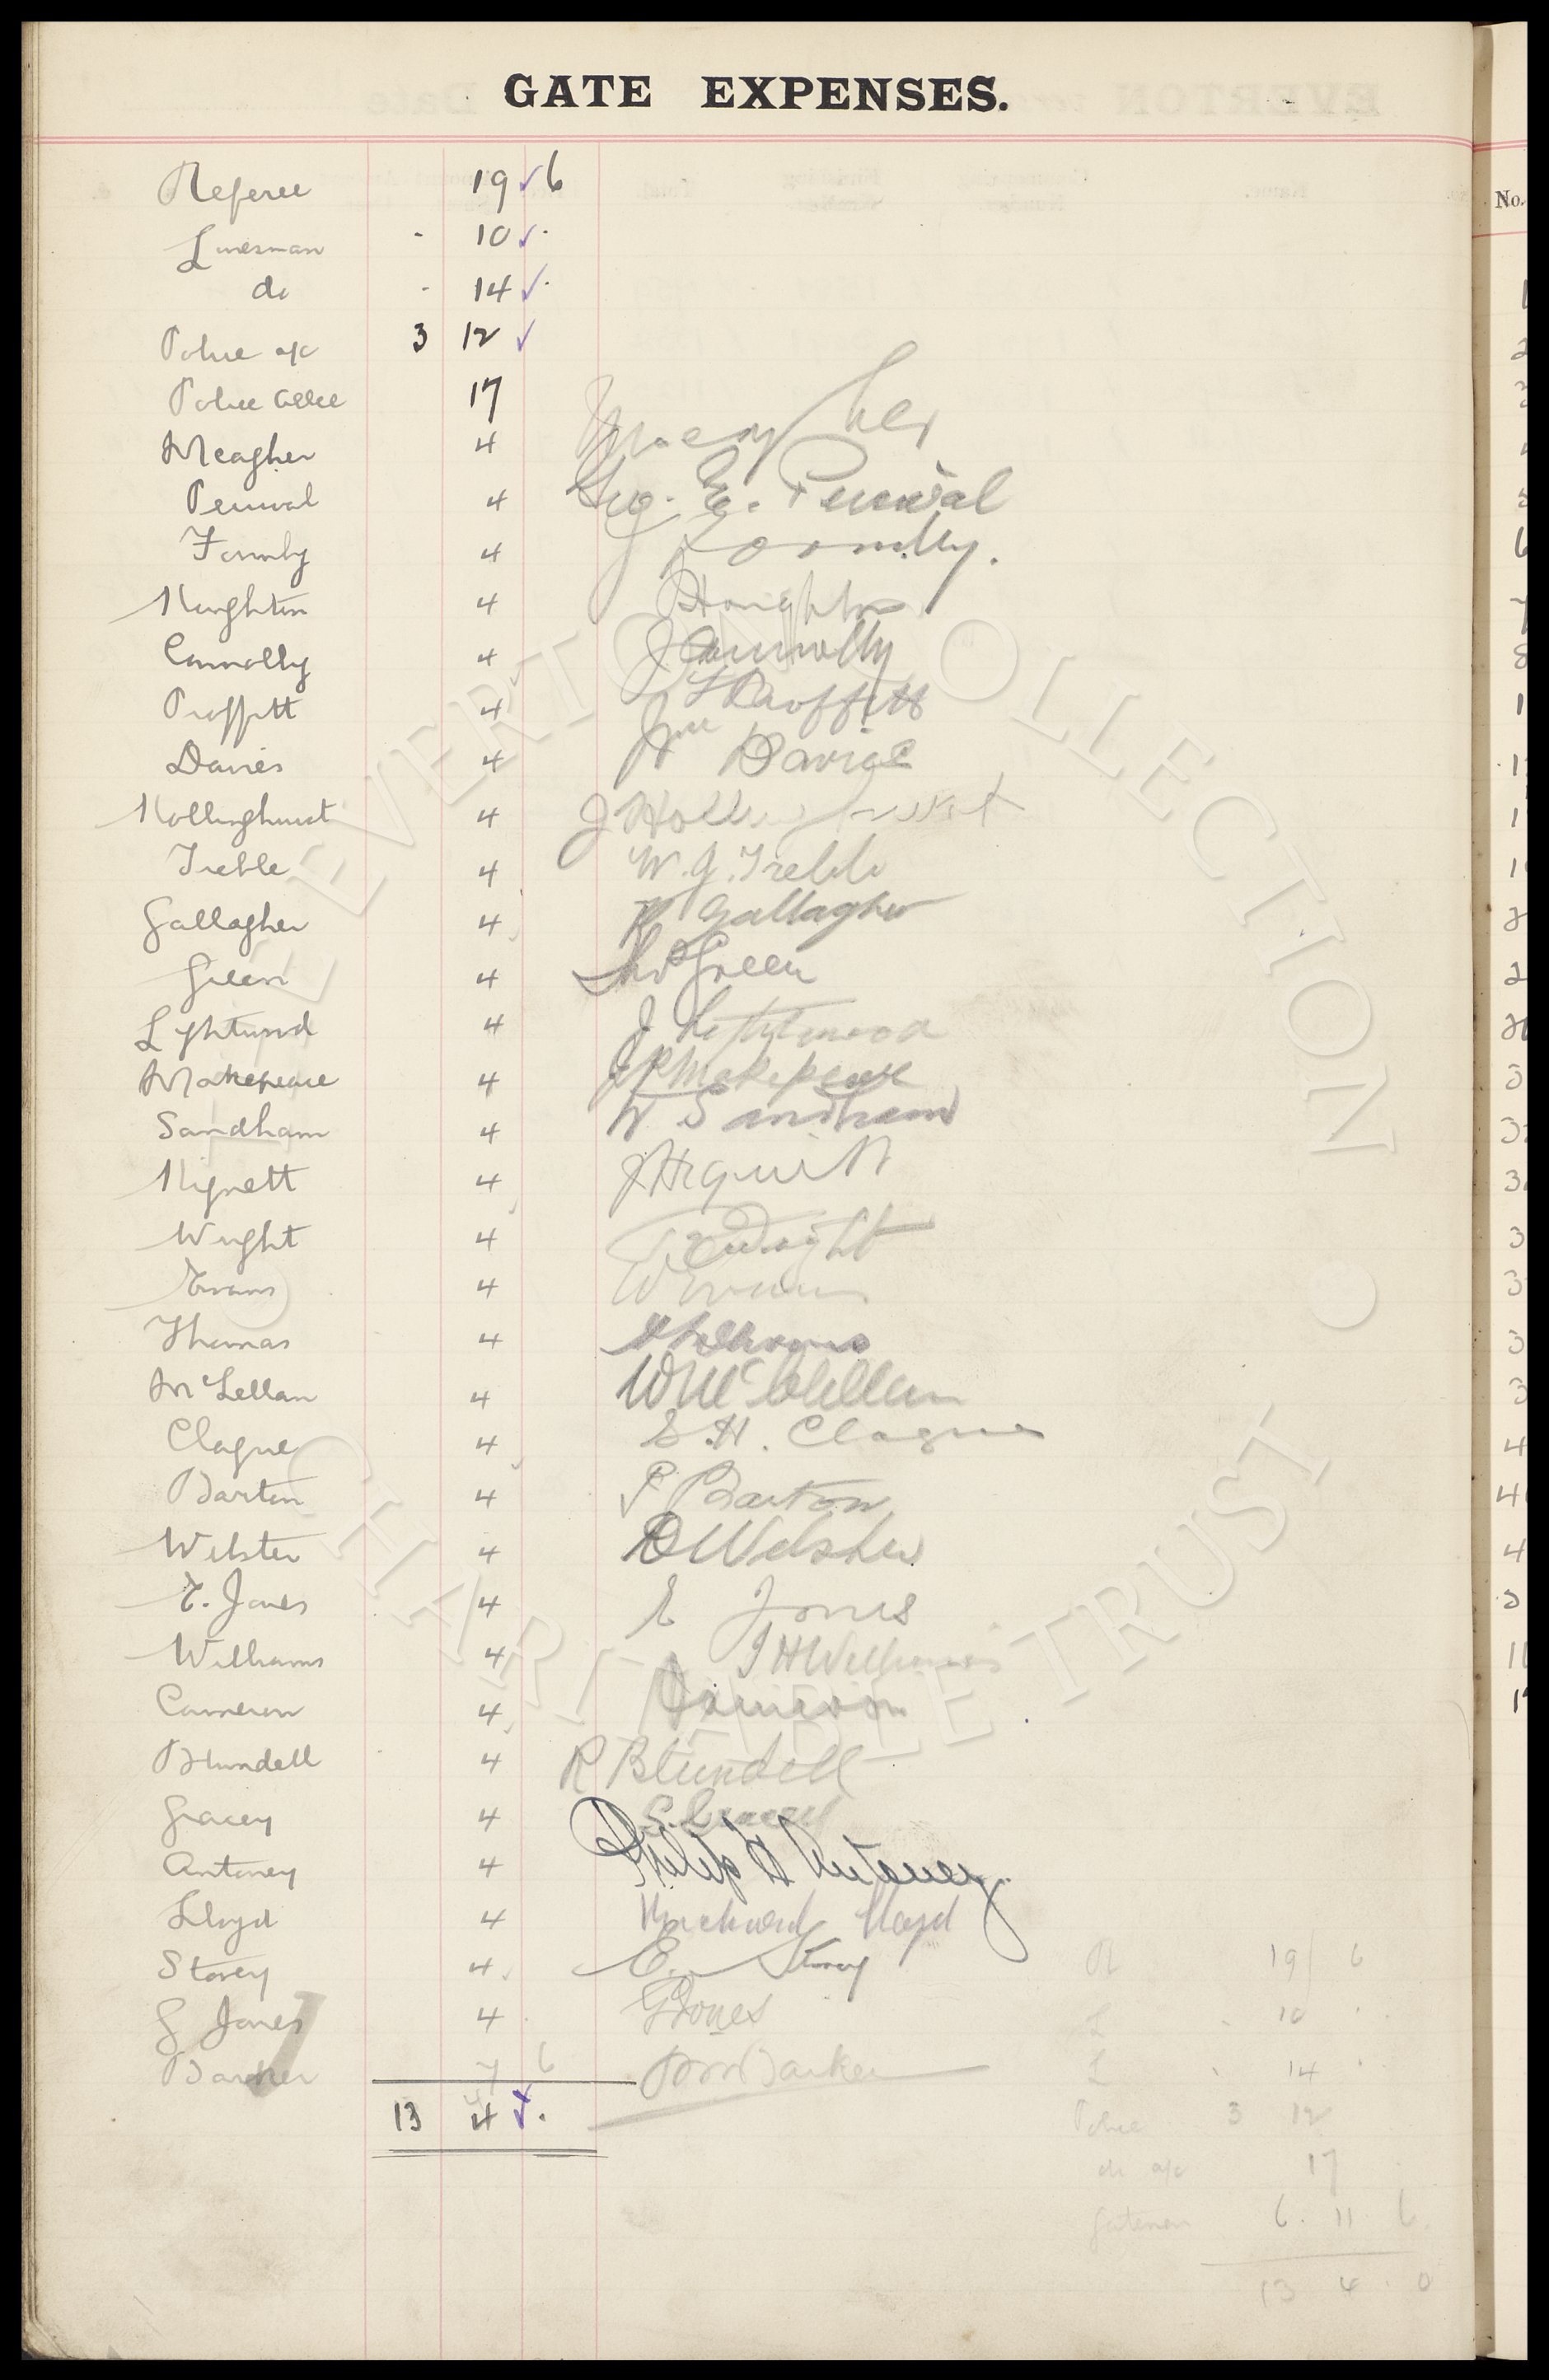 GATE EXPENSES.
Referee 19 6
Linesman - 10 .
do - 14 .
Police a/c 3 12
Police 17
Meagher 4 Meagher
Percival 4 Geo. E. Percival
Formby 4 J Formby.
Houghton 4 Houghton
Connolly 4 J Connolly
Proffitt 4 Proffitt
Davies 4 Wm Davies
Hollinghurst 4 J Hollinghurst
Treble 4 W. J. Treble
Gallagher 4 Gallagher
Green 4 Thos Green
Lightwood 4 J Lightwood
Makepeace 4 Makepeace
Sandham 4 W Sandham
Hignett 4 J Hignett
Wright 4 Wright
Evans 4 W Evans
Thomas 4 Thomas
McLellan 4 W McLellan
Clague 4 S. H. Clague
Barton 4 P Barton
Webster 4 Webster
E. Jones 4 E Jones
Williams 4 J H Williams
Cameron 4 Cameron
Blundell 4 R Blundell
Gracey 4 Gracey
Antoney 4 Philip H Antoney.
Lloyd 4 Lloyd
Storey 4 E. Storey
G Jones 4 G Jones
Barker 7 6 Barker
13 4 .
R 19 6
L - 10 .
L - 14 .
Police 3 12
do a/c 17
Gatemen 6. 11 6.
13 4 . 0
No.
EVERTON COLLECTION
CHARITABLE TRUST